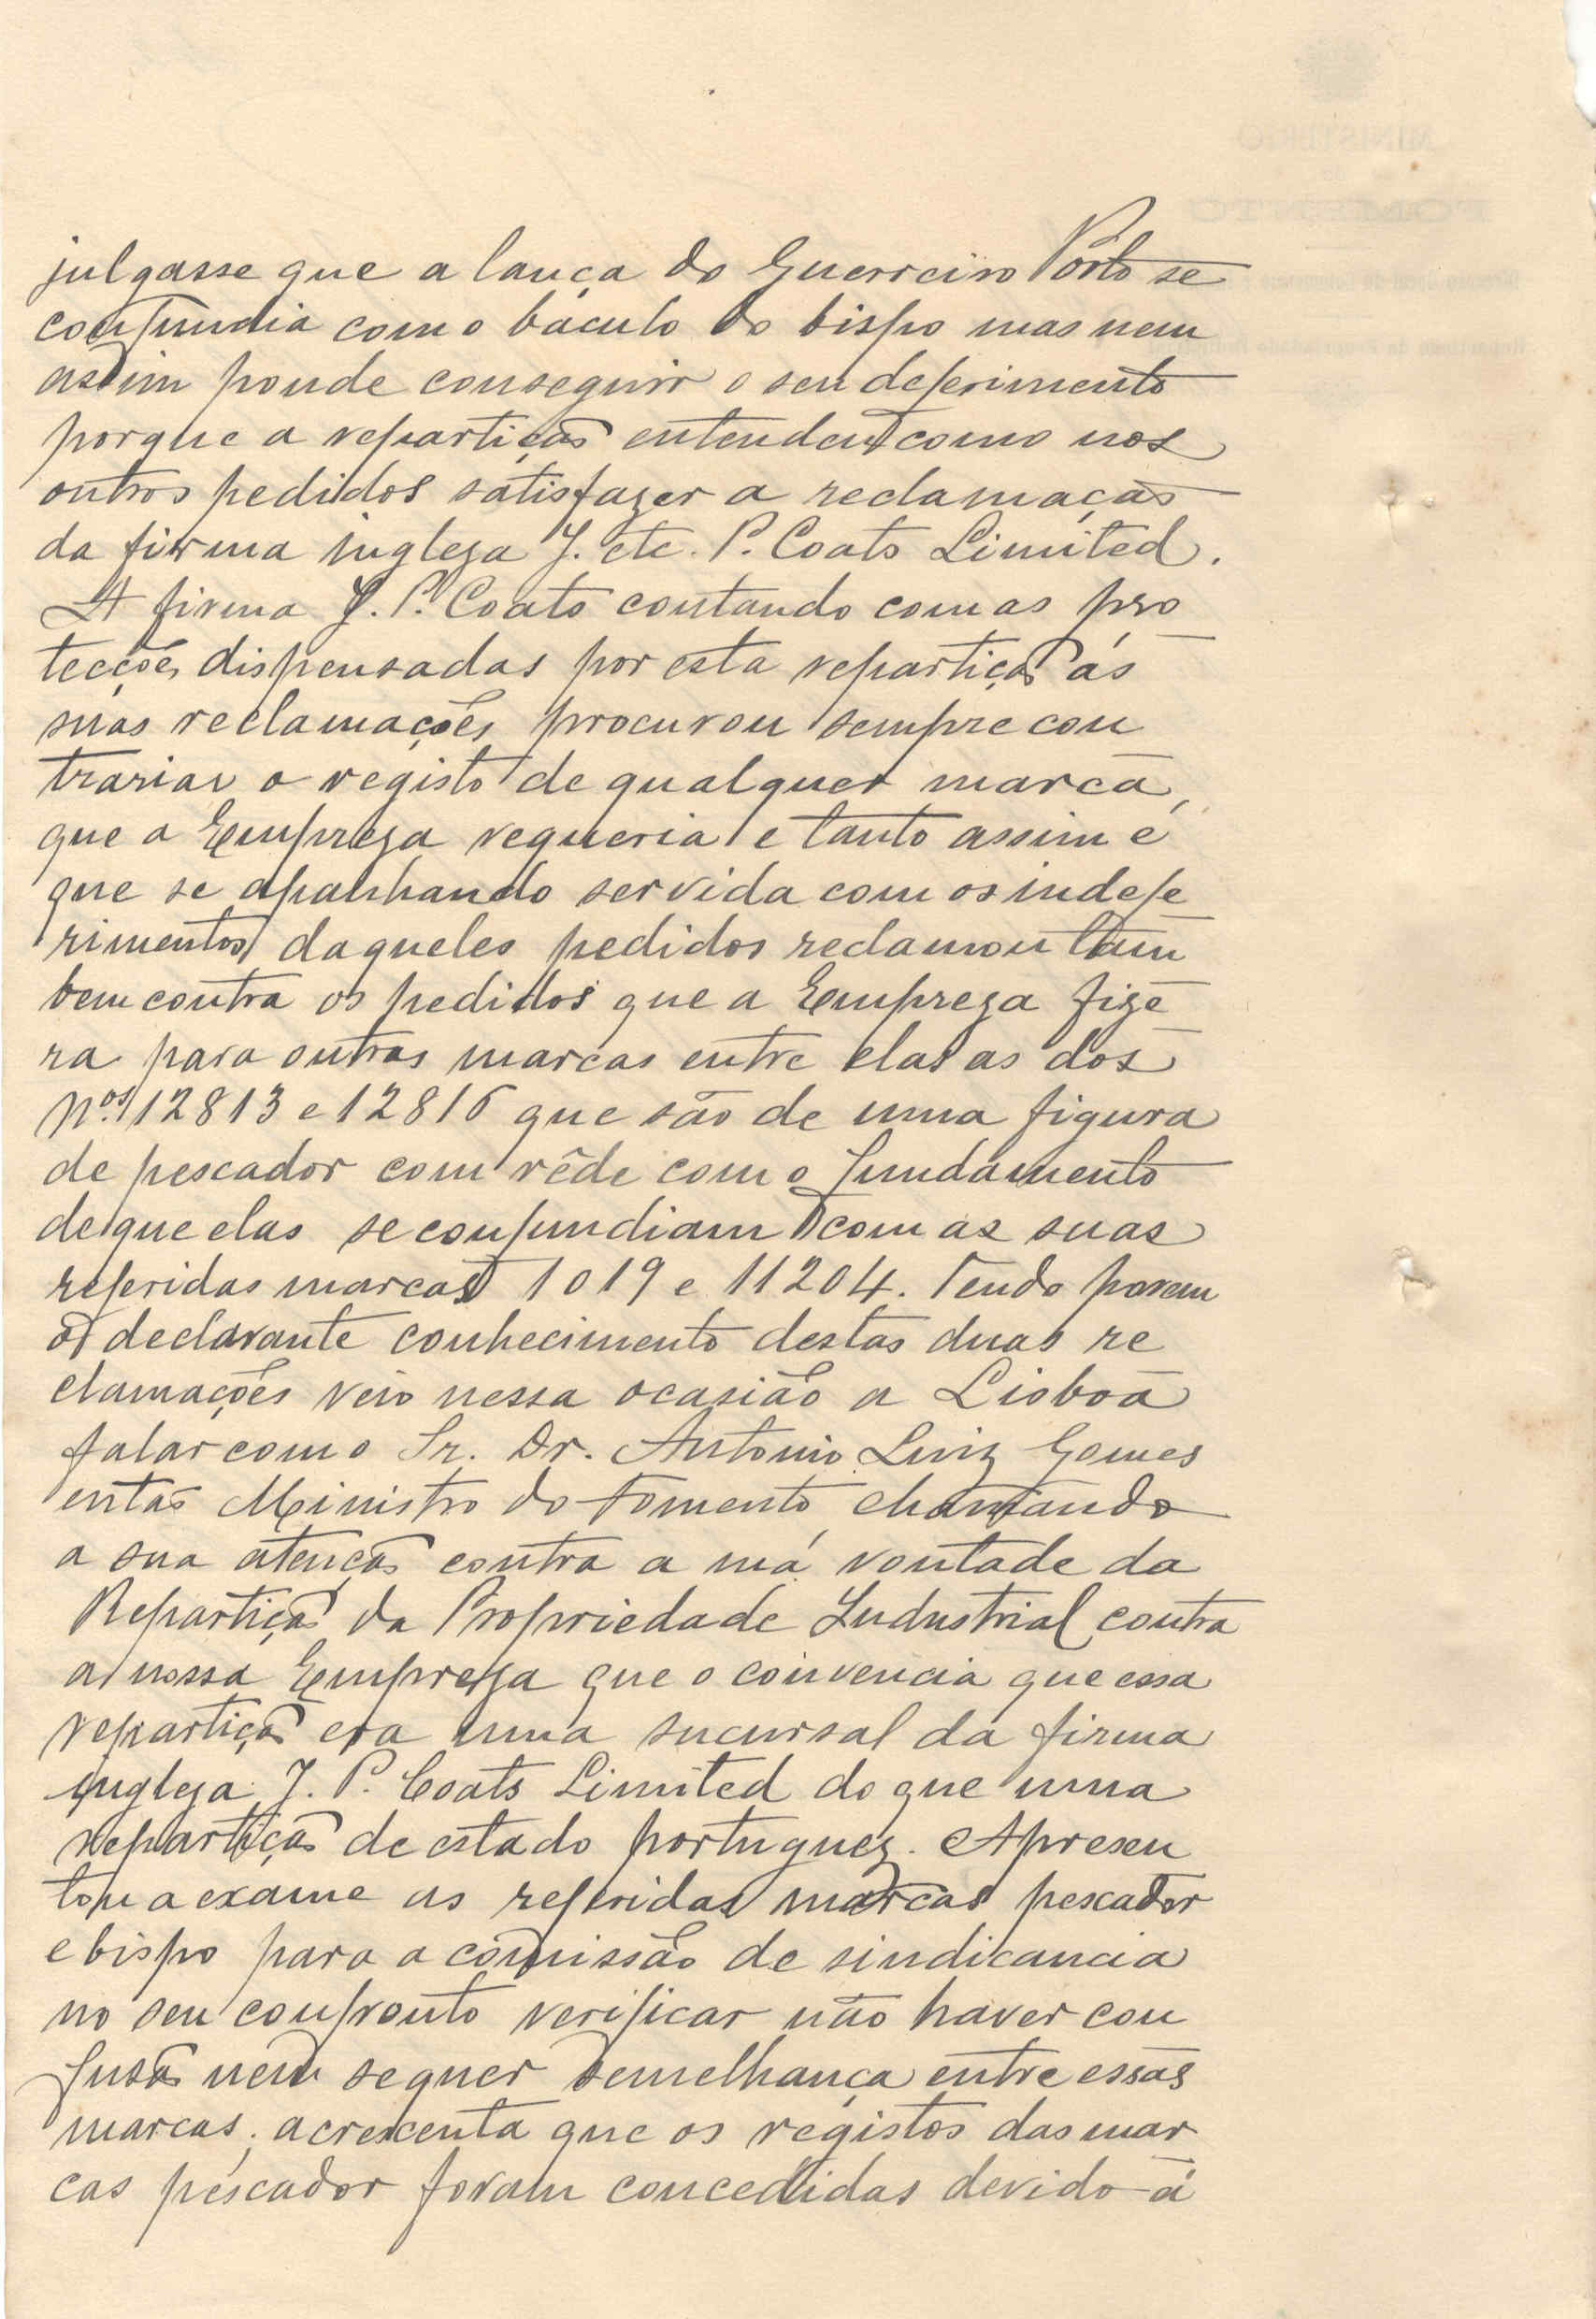 julgasse que a lança do Guerreiro Porto se
confundia com o báculo do bispo mas nem
assim poude conseguir o seu deferimento
porque a repartição entendeu como nos
outros pedidos satisfazer a reclamação
da firma ingleza J. etc. P. Coats Limited.
A firma J. P. Coats contando com as pro
tecções dispensadas por esta repartição ás
suas reclamações procurou sempre con
trariar o registo de qualquer marca,
que a Empreza requeria e tanto assim é
que se apanhando servida com os indefe
rimentos daqueles pedidos reclamou tam
bem contra os pedidos que a Empreza fize
ra para outras marcas entre elas as dos
Nos 12813 e 12816 que são de uma figura
de pescador com rêde com o fundamento
de que elas se confundiam com as suas
referidas marcas 1019 e 11204. Tendo porem
o declarante conhecimento destas duas re
clamações veio nessa ocasião a Lisboa
falar com o Sr. Dr. Antonio Luiz Gomes
então Ministro do Fomento chamando
a sua atencão contra a má vontade da
Repartição da Propriedade Industrial contra
a nossa Empreza que o convencia que essa
repartição era uma sucursal da firma
ingleza J. P. Coats Limited do que uma
repartição de estado portuguez. Apresen
tou a exame as referidas marcas pescador
e bispo para a comissão de sindicancia
no seu confronto verificar não haver con
fusão nem sequer semelhança entre essas
marcas; acrescenta que os registos das mar
cas pescador foram concedidas devido á